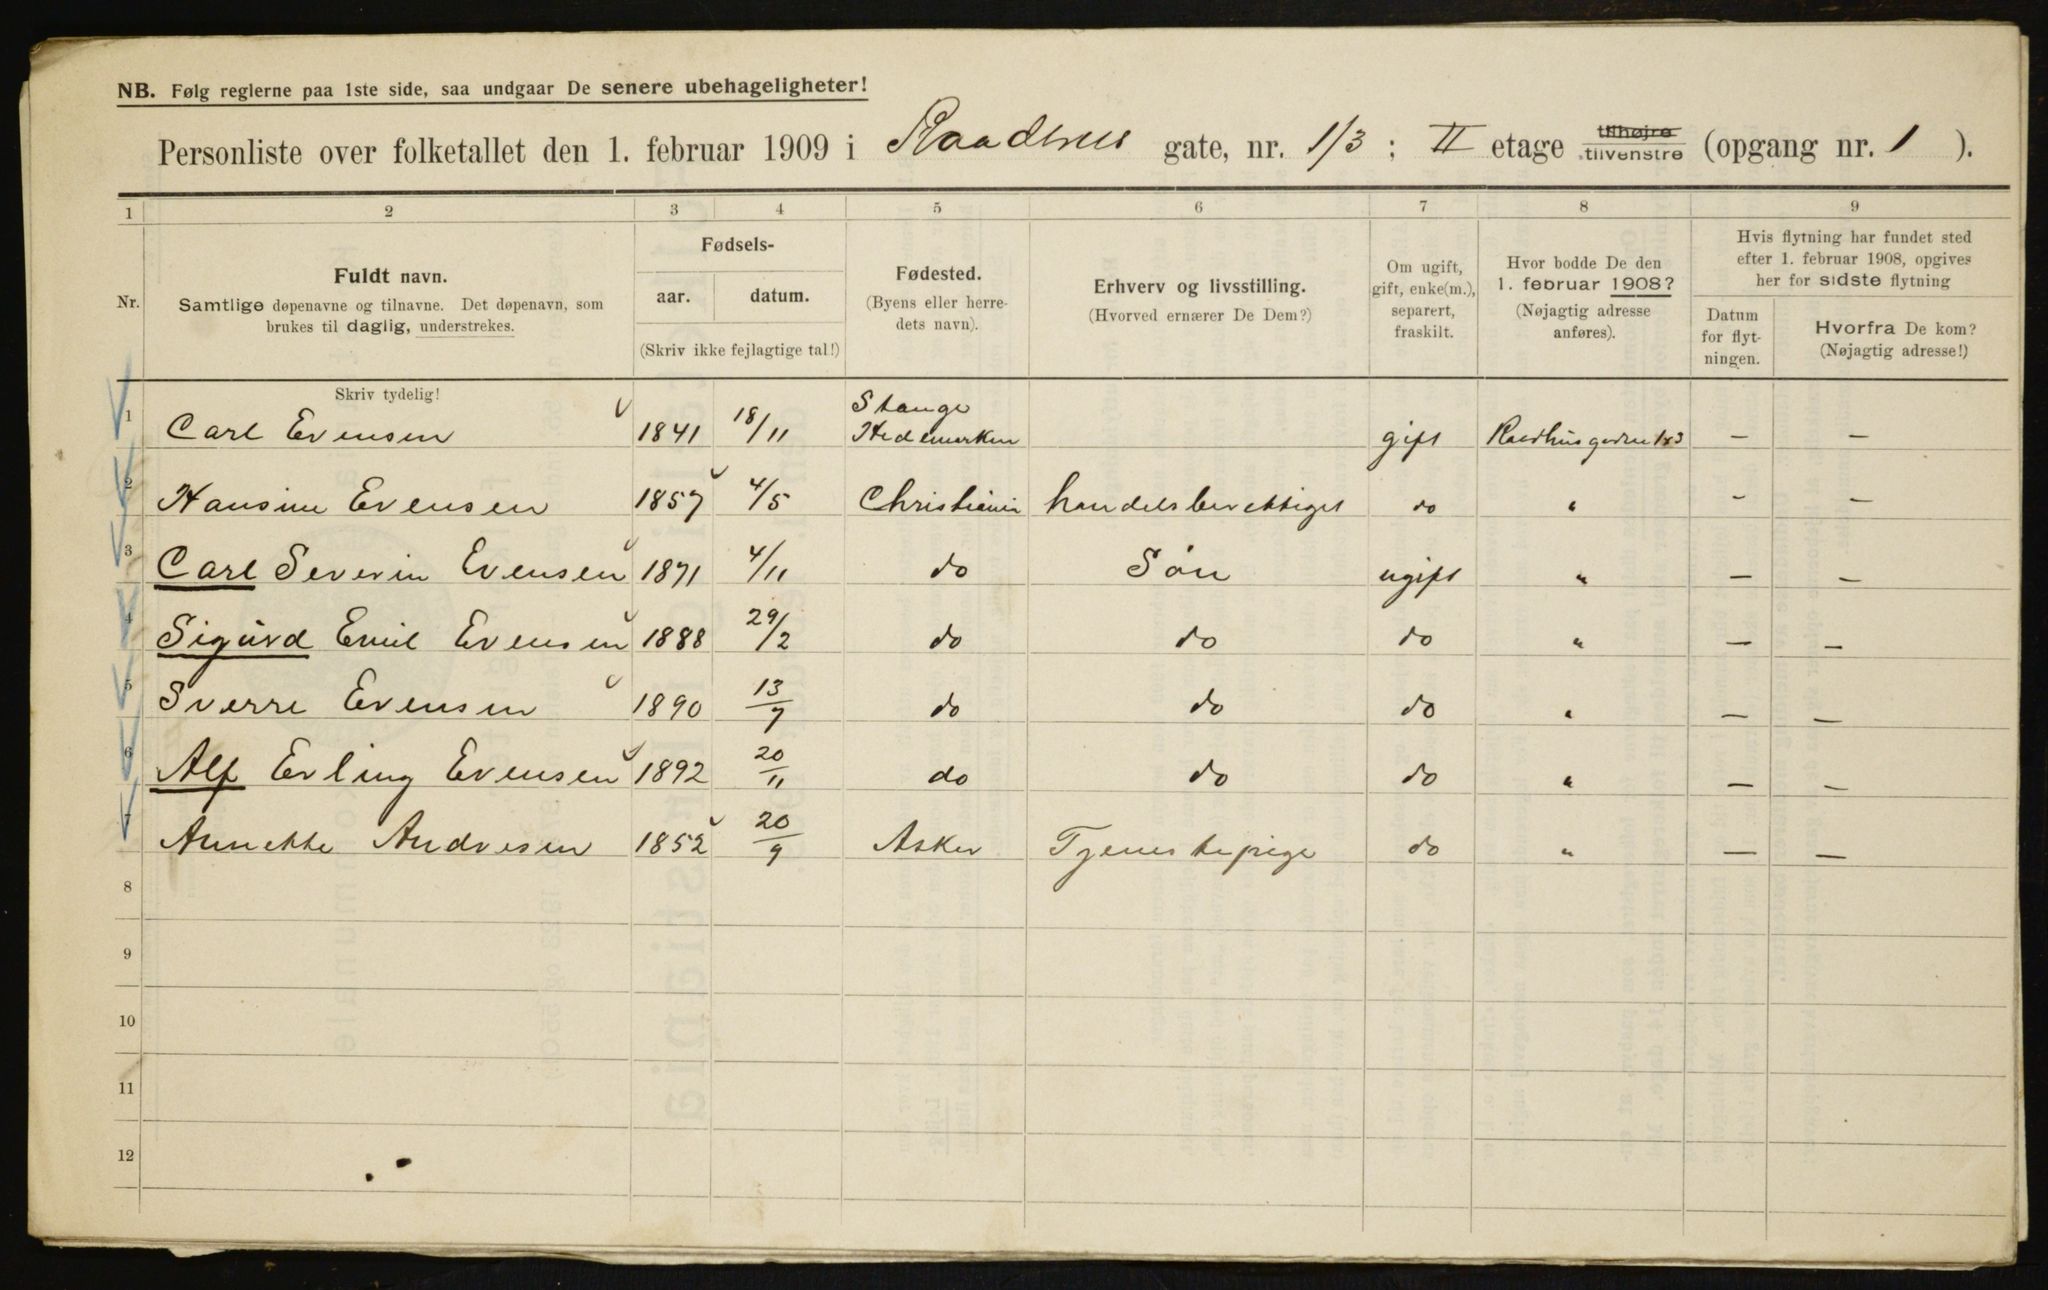 NB. Følg reglerne paa 1ste side, saa undgaar De senere ubehageligheter!
Personliste over folketallet den 1. februar 1909 i Raadhus gate, nr. 1/3 ; II etage tilhøjre tilvenstre (opgang nr. 1 ).
1 2 3 4 5 6 7 8 9
Nr.
Fuldt navn.
Samtlige døpenavne og tilnavne. Det døpenavn, som
brukes til daglig, understrekes.
Fødsels-
aar. datum.
(Skriv ikke fejlagtige tal!)
Fødested.
(Byens eller herre-
dets navn).
Erhverv og livsstilling.
(Hvorved ernærer De Dem?)
Om ugift,
gift, enke(m.),
separert,
fraskilt.
Hvor bodde De den
1. februar 1908?
(Nøjagtig adresse
anføres).
Hvis flytning har fundet sted
efter 1. februar 1908, opgives
her for sidste flytning
Datum
for flyt-
ningen.
Hvorfra De kom?
(Nøjagtig adresse!)
Skriv tydelig!
1 Carl Evensen 1841 18/11 Stange Hedemarken gift Raadhusgaden 1x3 — —
2 Hansine Evensen 1857 4/5 Christiania handelsberettiget do " — —
3 Carl Severin Evensen 1871 4/11 do Søn ugift " — —
4 Sigurd Emil Evensen 1888 29/2 do do do " — —
5 Sverre Evensen 1890 13/7 do do do " — —
6 Alf Erling Evensen 1892 20/11 do do do " — —
7 Annette Andresen 1852 20/9 Asker Tjenestepige do " — —
8
9
10
11
12